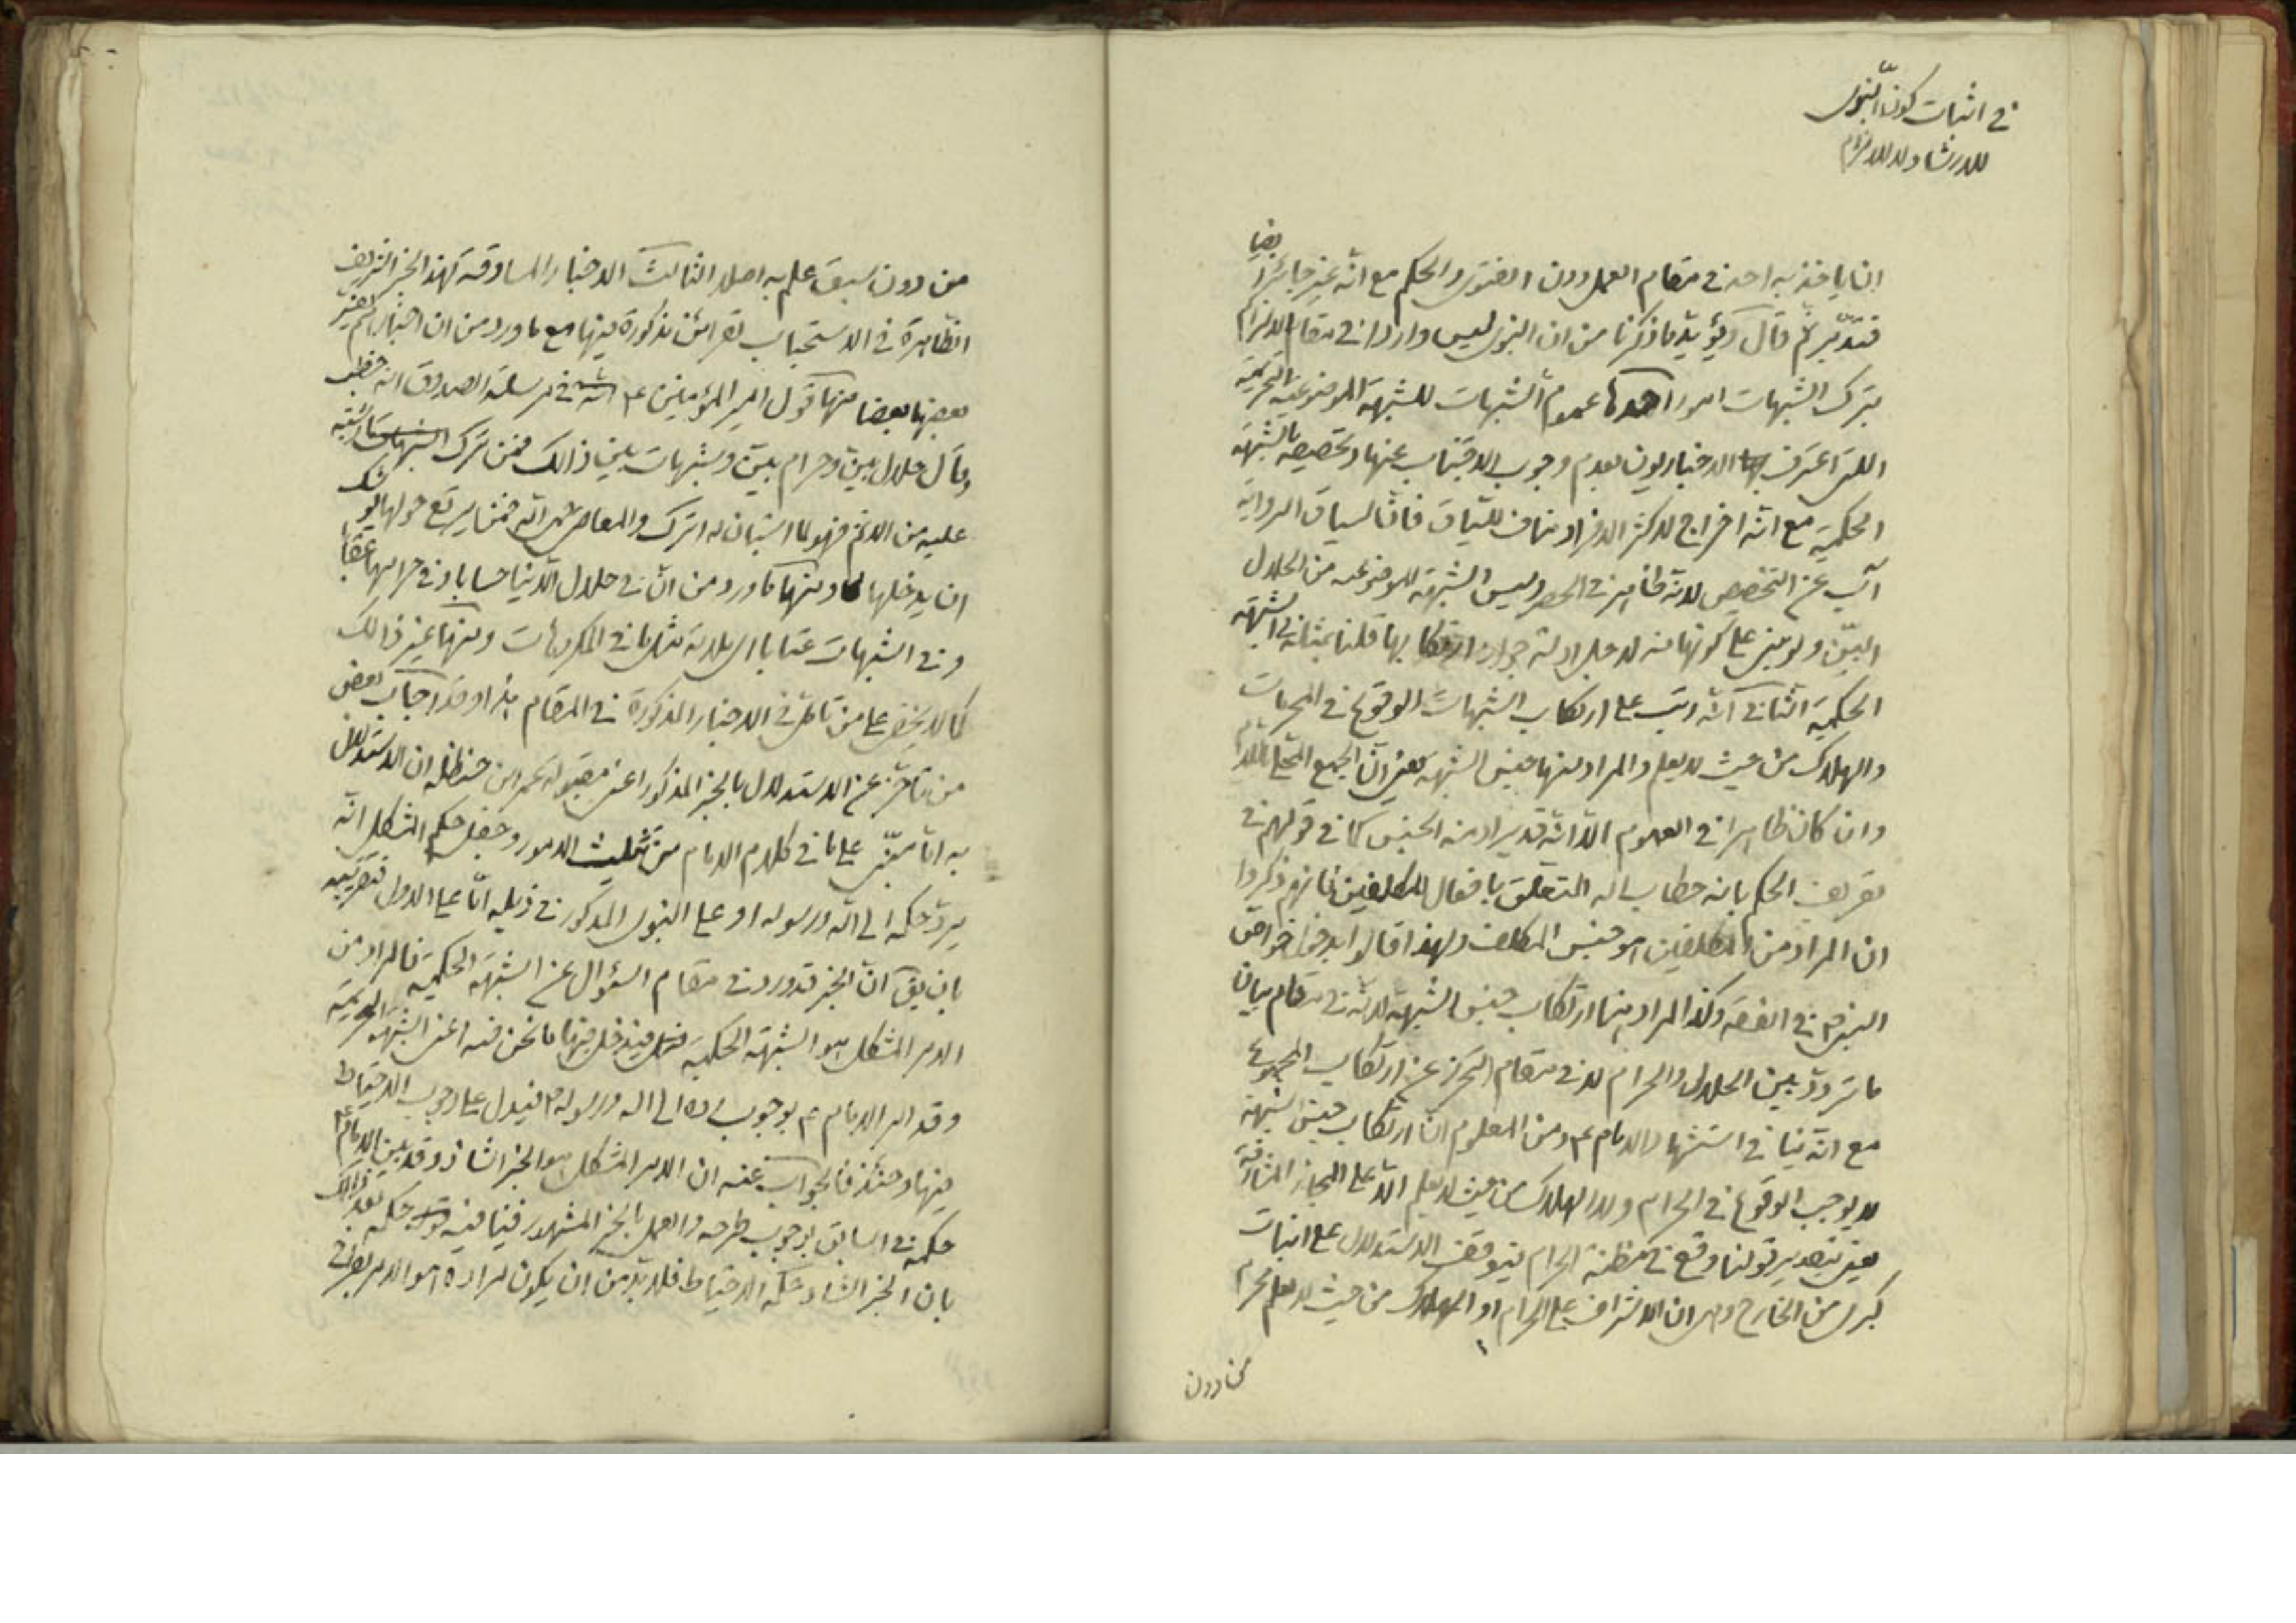 في اثبات كون النبوى
للارشاد لا للالزام
ايضا
ان ياخذ به احد في مقام العمل دون الفتوى والحكم مع انه غير جائز
فتدبر ثم قال ويؤيد ما ذكرنا من ان النبوى ليس واردا في مقام الالزام
بترك الشبهات امور احدها عموم الشبهات للشبهة الموضوعية التحريمية
التى اعترف الاخباريون بعدم وجوب الاجتناب عنها وتخصيصه بالشبهة
الحكمية مع انه اخراج لاكثر الافراد مناف للسياق فان سياق الرواية
آب عن التخصيص لانه ظاهر في الحصر وليس الشبهة الموضوعية من الحلال
البين ولو بنى على كونها منه لاجل ادلة جواز ارتكابها قلنا بمثله في الشبهة
الحكمية الثاني انه رتب على ارتكاب الشبهات الوقوع في المحرمات
والهلاك من حيث لا يعلم والمراد منها جنس الشبهة يعنى ان الجمع المحلى باللام
وان كان ظاهرا في العموم الا انه قد يراد منه الجنس كما في قولهم في
تعريف الحكم بانه خطاب الله المتعلق بافعال المكلفين فانهم ذكروا
ان المراد من المكلفين هو جنس المكلف ولهذا قالوا بدخول خواص
النبى ص في الفقه وكذا المراد هنا ارتكاب جنس الشبهة لانه في مقام بيان
ما تردد بين الحلال والحرام لا في مقام التحرز عن ارتكاب المجموع
مع انه ينافى استشهاد الامام ع ومن المعلوم ان ارتكاب جنس الشبهة
لا يوجب الوقوع في الحرام ولا الهلاك من حيث لا يعلم الا على المجاز المشارفة
يعنى بتصدير قولنا وقع في مظنة الحرام فيتوقف الاستدلال على اثبات
كبرى من الخارج وهى ان الاشراف على الحرام او الهلاك من حيث لا يعلم محرم
من دون
من دون سبق علم به اصلا الثالث الاخبار المساوقة لهذا الخبر الشريف
الظاهرة في الاستحباب لقرائن مذكورة فيها مع ما ورد من ان اخبارهم يفسر
بعضها بعضا منها قول امير المؤمنين ع في مرسلة الصدوق انه خطب
وقال حلال بين وحرام بين وشبهات بين ذالك فمن ترك ما اشتبه
عليه من الاثم فهو لما استبان له اترك والمعاصى حمى الله فمن يرتع حولها يوشك
ان يدخلها ومنها ما ورد من ان في حلال الدنيا حسابا وفي حرامها عقابا
وفي الشبهات عتابا اى ملامة مثل ما في المكروهات ومنها غير ذالك
كما لا يخفى على من تامل في الاخبار المذكورة في المقام هذا وقد اجاب بعض
من تاخر عن الاستدلال بالخبر المذكور اعنى مقبولة عمر ابن حنظلة ان الاستدلال
به اما مبنى على ما في كلام الامام من تثليث الامور وجعل حكم المشكل انه
يرد حكمه الى الله ورسوله او على النبوى المذكور في ذيله اما على الاول فتقريبه
بان يق ان الخبر قد ورد في مقام السؤال عن الشبهة الحكمية فالمراد من
الامر المشكل هو الشبهة الحكمية فيدخل فيها ما نحن فيه اعنى الشبهة التحريمية
وقد امر الامام ع بوجوب رده الى الله ورسوله ص فيدل على وجوب الاحتياط
فيها وحينئذ فالجواب عنه ان الامر المشكل هو الخبر الشاذ وقد بين الامام ع
حكمه في السابق بوجوب طرحه والعمل بالخبر المشهور فينافيه حكمه بعد ذالك
بان الخبر الشاذ حكمه الاحتياط فلا بد من ان يكون مراده هو الامر بطرح